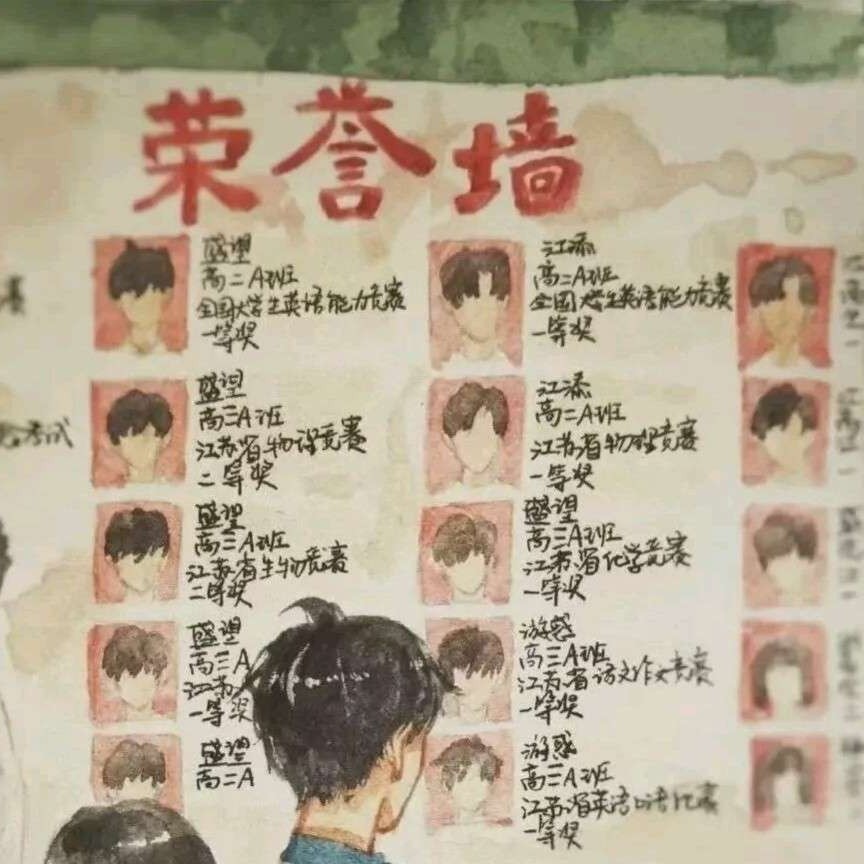 荣誉墙
盛望
高二A班
全国大学生英语能力竞赛
一等奖
盛望
高三A班
江苏省物理竞赛
二等奖
盛望
高三A班
江苏省生物竞赛
二等奖
盛望
高三A
江苏
一等奖
盛望
高二A
江添
高二A班
全国大学生英语能力竞赛
一等奖
江添
高二A班
江苏省物理竞赛
一等奖
盛望
高三A班
江苏省化学竞赛
一等奖
游惑
高三A班
江苏省语文作文竞赛
一等奖
游惑
高三A班
江苏省英语口语比赛
一等奖